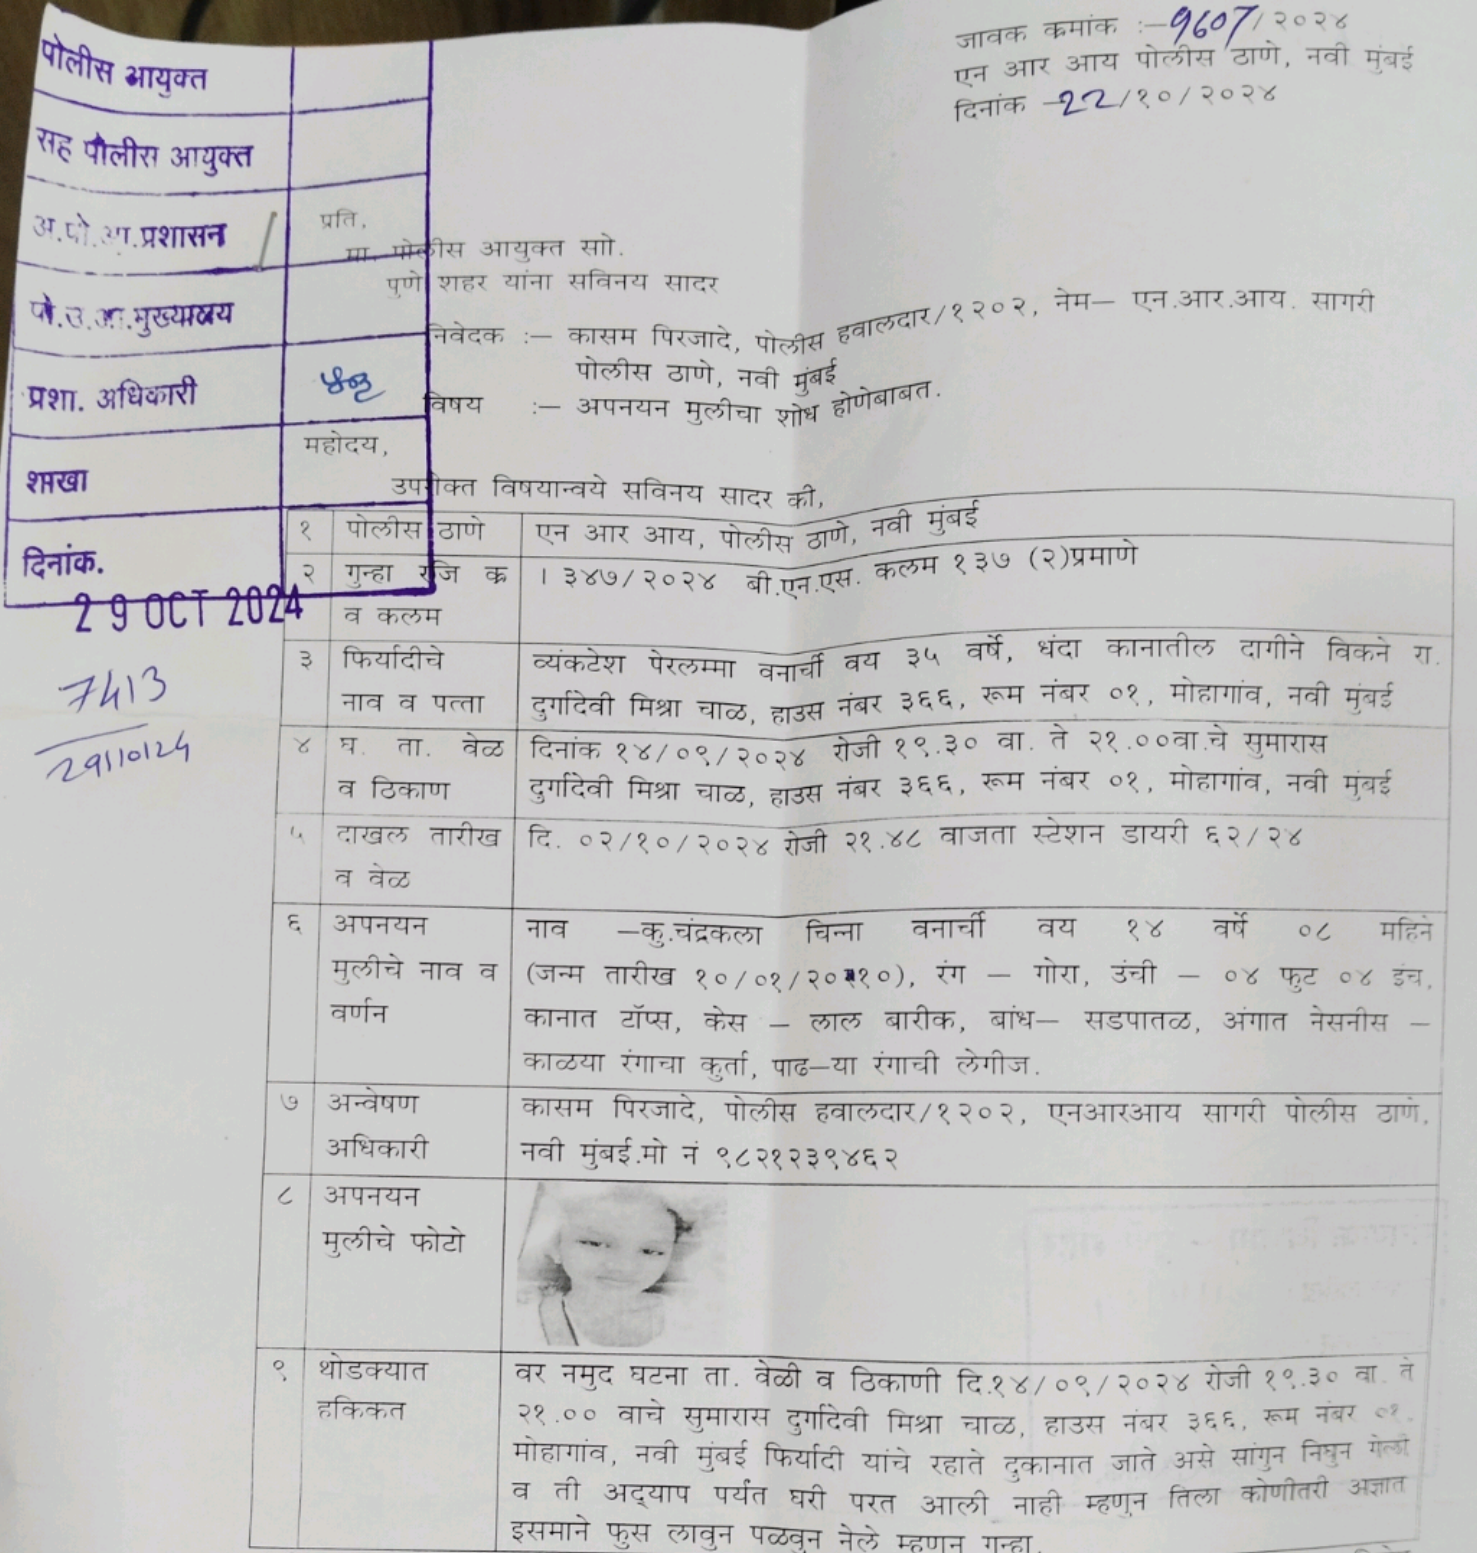 पोलीस आयुक्त
सह पोलीस आयुक्त
अ.पो.आ.प्रशासन
पो.उ.आ.मुख्यालय
प्रशा. अधिकारी
शाखा
दिनांक.
29 OCT 2024
7413
29/10/24
जावक कमांक :–9607/२०२४
एन आर आय पोलीस ठाणे, नवी मुंबई
दिनांक –22/१०/२०२४
प्रति,
मा. पोलीस आयुक्त साो.
पुणे शहर यांना सविनय सादर
निवेदक :– कासम पिरजादे, पोलीस हवालदार/१२०२, नेम– एन.आर.आय. सागरी
पोलीस ठाणे, नवी मुंबई
विषय :– अपनयन मुलीचा शोध होणेबाबत.
महोदय,
उपरोक्त विषयान्वये सविनय सादर की,
१ पोलीस ठाणे एन आर आय, पोलीस ठाणे, नवी मुंबई
२ गुन्हा रजि क्र । ३४७/२०२४ बी.एन.एस. कलम १३७ (२)प्रमाणे
व कलम
३ फिर्यादीचे व्यंकटेश पेरलम्मा वनार्ची वय ३५ वर्षे, धंदा कानातील दागीने विकने रा.
नाव व पत्ता दुर्गादेवी मिश्रा चाळ, हाउस नंबर ३६६, रूम नंबर ०१, मोहागांव, नवी मुंबई
४ घ. ता. वेळ दिनांक १४/०९/२०२४ रोजी १९.३० वा. ते २१.००वा.चे सुमारास
व ठिकाण दुर्गादेवी मिश्रा चाळ, हाउस नंबर ३६६, रूम नंबर ०१, मोहागांव, नवी मुंबई
५ दाखल तारीख दि. ०२/१०/२०२४ रोजी २१.४८ वाजता स्टेशन डायरी ६२/२४
व वेळ
६ अपनयन नाव –कु.चंद्रकला चिन्ना वनार्ची वय १४ वर्षे ०८ महिने
मुलीचे नाव व (जन्म तारीख १०/०१/२०१०), रंग – गोरा, उंची – ०४ फुट ०४ इंच,
वर्णन कानात टॉप्स, केस – लाल बारीक, बांध– सडपातळ, अंगात नेसनीस –
काळया रंगाचा कुर्ता, पाढ–या रंगाची लेगीज.
७ अन्वेषण कासम पिरजादे, पोलीस हवालदार/१२०२, एनआरआय सागरी पोलीस ठाणे,
अधिकारी नवी मुंबई.मो नं ९८२१२३९४६२
८ अपनयन
मुलीचे फोटो
९ थोडक्यात वर नमुद घटना ता. वेळी व ठिकाणी दि.१४/०९/२०२४ रोजी १९.३० वा. ते
हकिकत २१.०० वाचे सुमारास दुर्गादेवी मिश्रा चाळ, हाउस नंबर ३६६, रूम नंबर ०१,
मोहागांव, नवी मुंबई फिर्यादी यांचे रहाते दुकानात जाते असे सांगुन निघुन गेली
व ती अद्याप पर्यंत घरी परत आली नाही म्हणुन तिला कोणीतरी अज्ञात
इसमाने फुस लावुन पळवुन नेले म्हणुन गुन्हा.